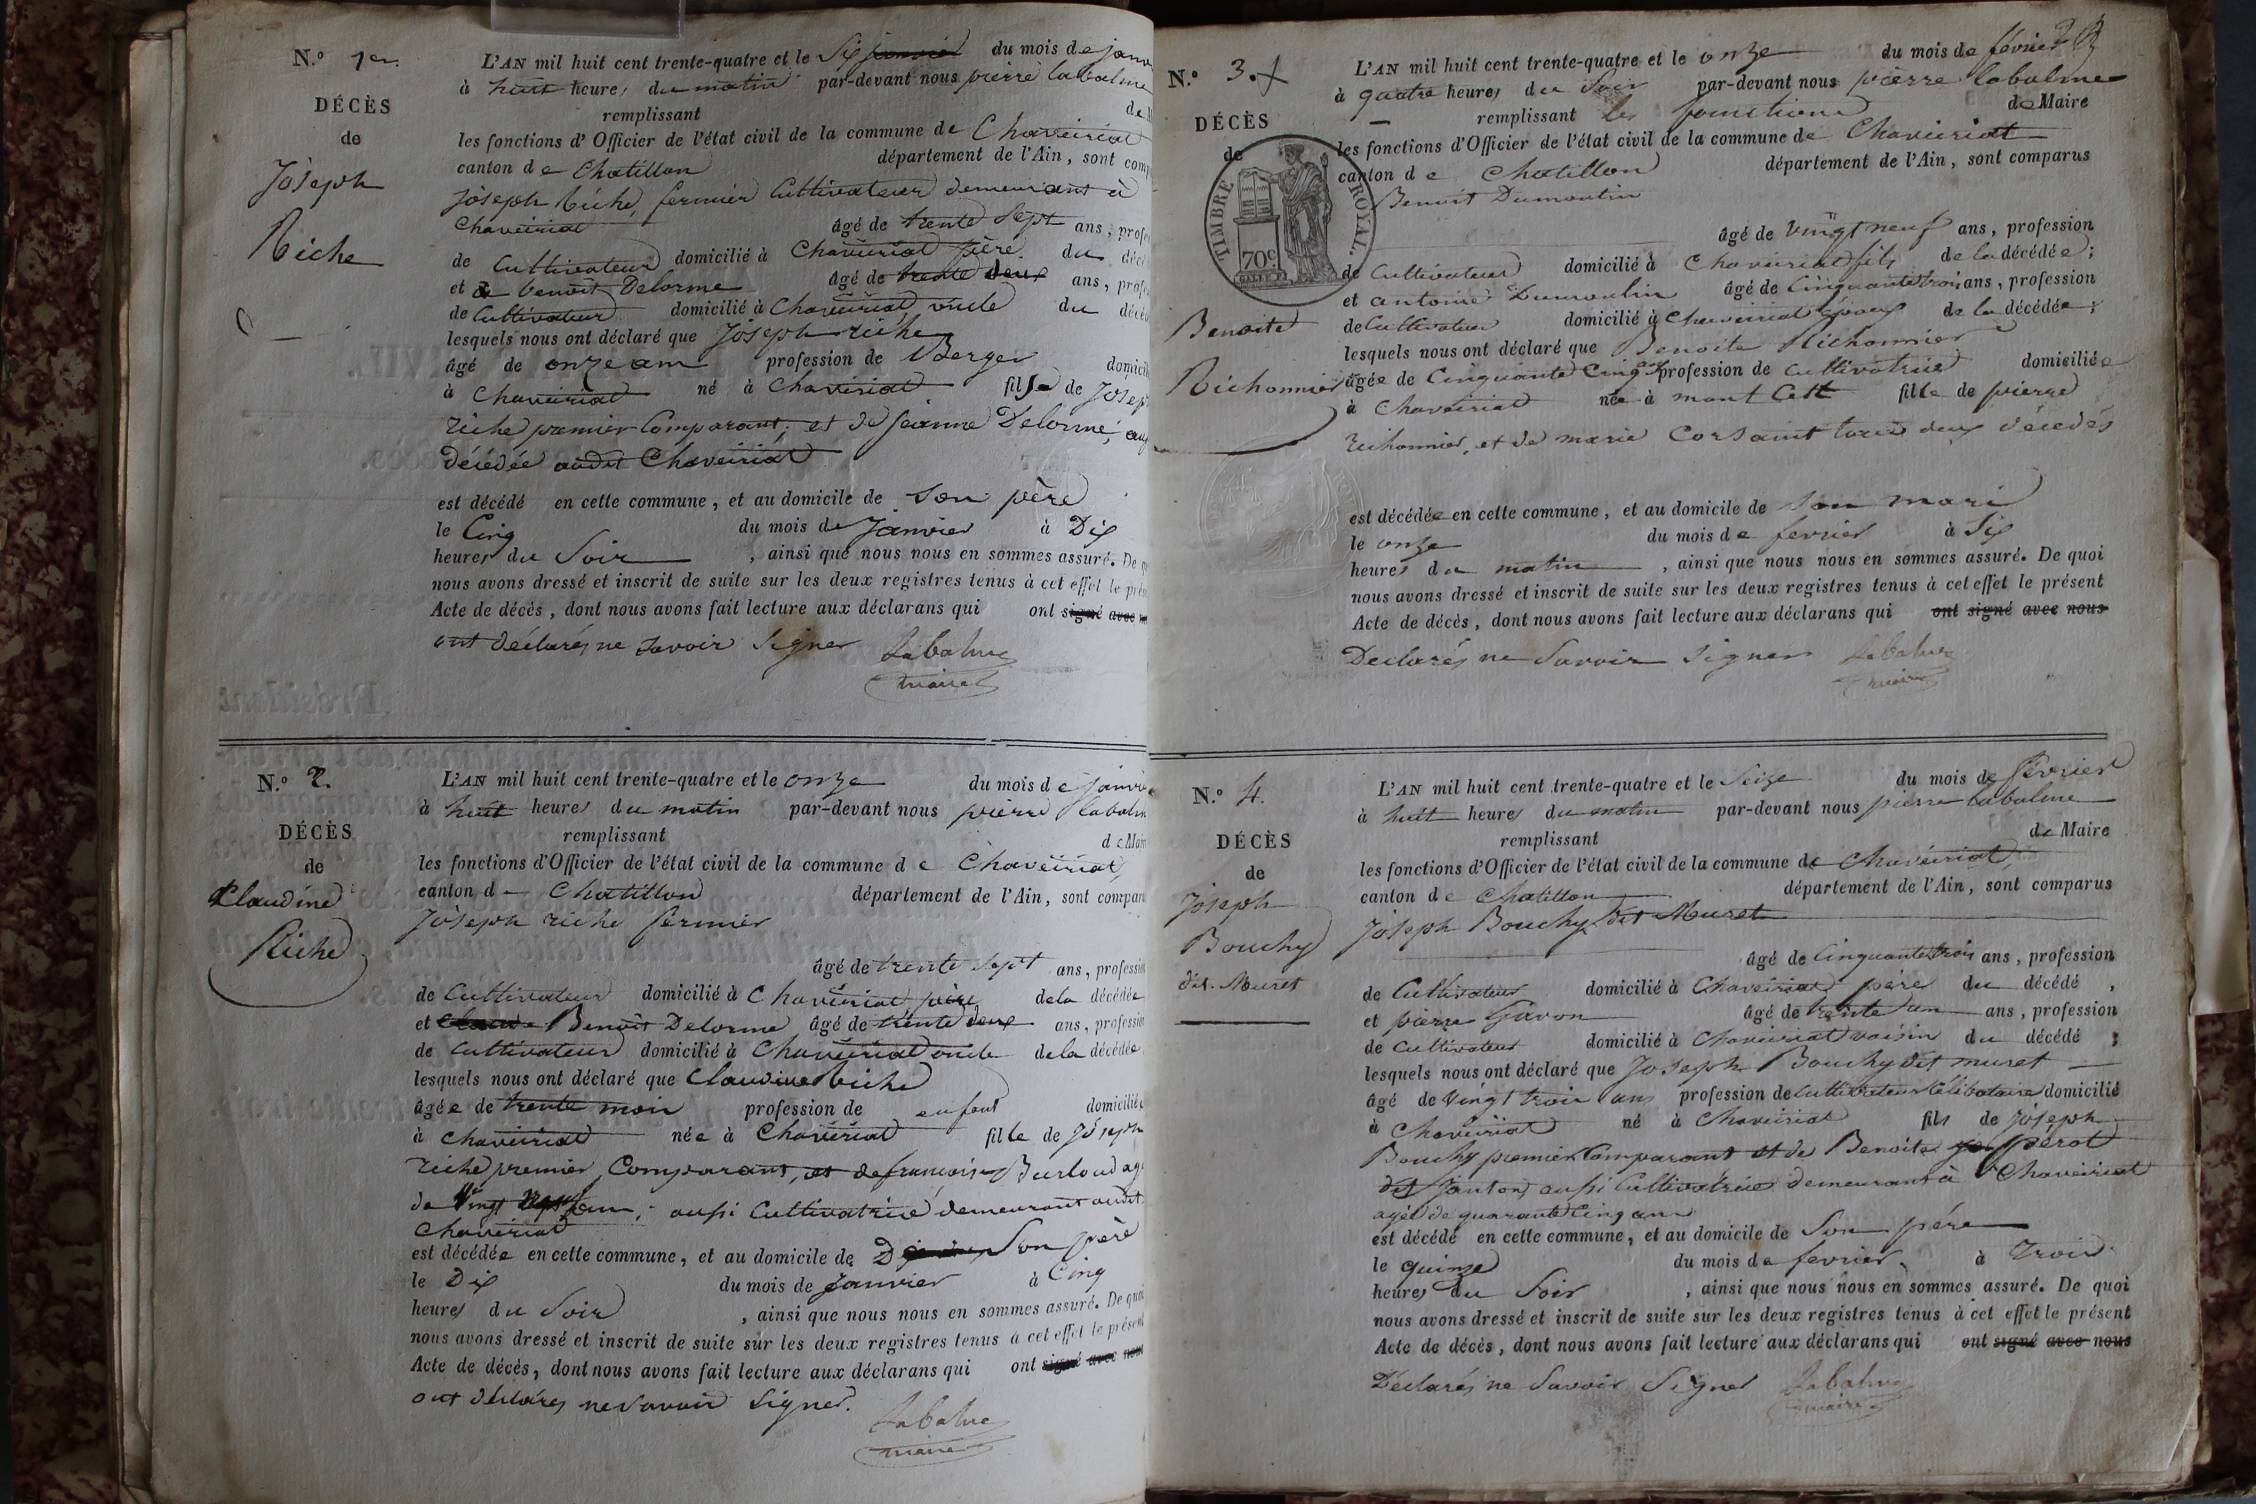 N.º 1er.
DÉCÈS
de
Joseph
Riche
L'AN mil huit cent trente-quatre et le Six janvier du mois de janv
à huit heures du matin par-devant nous pierre labalme
remplissant de
les fonctions d'Officier de l'état civil de la commune de Chaveiriat
canton de Chatillon département de l'Ain, sont comp
joseph Riche, fermier Cultivateur demeurant à
Chaveiriat âgé de trente sept ans, profe
de Cultivateur domicilié à Chaveiriat père du déc
et benoit Delorme âgé de trente deux ans, profe
de Cultivateur domicilié à Chaveiriat oncle du décé
lesquels nous ont déclaré que Joseph riche
âgé de onze ans profession de Berger domicil
à Chaveiriat né à Chaveiriat fils de Josep
riche premier Comparant, et de jeanne Delorme,
Décédée audit Chaveiriat
est décédé en cette commune, et au domicile de son père
le Cinq du mois de Janvier à Dix
heures du Soir, ainsi que nous nous en sommes assuré. De q
nous avons dressé et inscrit de suite sur les deux registres tenus à cet effet le prés
Acte de décès, dont nous avons fait lecture aux déclarans qui ont signé avec n
ont déclarés ne savoir signer Labalme
maire
N.º 2.
DÉCÈS
de
Claudine
Riche
L'AN mil huit cent trente-quatre et le onze du mois de janvi
à huit heures du matin par-devant nous pierre labalm
remplissant de Mair
les fonctions d'Officier de l'état civil de la commune de Chaveiriat,
canton d Chatillon département de l'Ain, sont compar
Joseph riche fermier
âgé de trente sept ans, profession
de Cultivateur domicilié à Chaveiriat père de la décédée
et Benoit Delorme âgé de trente deux ans, profession
de Cultivateur domicilié à Chaveiriat oncle de la décédée
lesquels nous ont déclaré que Claudine Riche
âgée de trente mois profession de enfant domiciliée
à Chaveiriat née à Chaveiriat fille de Joseph
riche premier Comparant, et de francoise Burloud ag
de Vingt ans, aussi Cultivatrice demeurant audit
Chaveiriat
est décédée en cette commune, et au domicile de Son père
le Dix du mois de Janvier à Cinq
heures du Soir, ainsi que nous nous en sommes assuré. De quoi
nous avons dressé et inscrit de suite sur les deux registres tenus à cet effet le présent
Acte de décès, dont nous avons fait lecture aux déclarans qui ont signé avec nous
ont déclarés ne savoir signer. Labalme
maire
N.º 3.
DÉCÈS
de
TIMBRE ROYAL.
70c
Benoite
Richonnier
L'AN mil huit cent trente-quatre et le onze du mois de février
à quatre heures du Soir par-devant nous pierre labalme
remplissant les fonctions de Maire
les fonctions d'Officier de l'état civil de la commune de Chaveiriat
canton de Chatillon département de l'Ain, sont comparus
Benoit Dumoulin
âgé de vingt neuf ans, profession
de Cultivateur domicilié à Chaveiriat fils de la décédée;
et antoine Dumoulin âgé de Cinquante trois ans, profession
de Cultivateur domicilié à Chaveiriat époux de la décédée;
lesquels nous ont déclaré que Benoite Richonnier
âgée de Cinquante Cinq ans profession de Cultivatrice domiciliée
à Chaveiriat née à mont Cett fille de pierre
richonnier, et de marie Corsaint tous deux décedés
est décédée en cette commune, et au domicile de son mari
le onze du mois de fevrier à Six
heures du matin, ainsi que nous nous en sommes assuré. De quoi
nous avons dressé et inscrit de suite sur les deux registres tenus à cet effet le présent
Acte de décès, dont nous avons fait lecture aux déclarans qui ont signé avec nous
Declarés ne Savoir signer Labalme
maire
N.º 4.
DÉCÈS
de
Joseph
Bouchy
dit Muret
L'AN mil huit cent trente-quatre et le Seize du mois de février
à huit heures du matin par-devant nous pierre labalme
remplissant de Maire
les fonctions d'Officier de l'état civil de la commune de Chaveiriat,
canton de Chatillon département de l'Ain, sont comparus
Joseph Bouchy dit Muret
âgé de Cinquante trois ans, profession
de Cultivateur domicilié à Chaveiriat père du décédé,
et pierre Gavon âgé de trente un ans, profession
de Cultivateur domicilié à Chaveiriat voisin du décédé;
lesquels nous ont déclaré que Joseph Bouchy dit muret
âgé de vingt trois ans profession de Cultivateur Célibataire domicilié
à Chaveiriat né à Chaveiriat fils de Joseph
Bouchy premier Comparant et de Benoite perot
dit Janton, aussi Cultivatrice demeurant à Chaveiriat
agée de quarante Cinq ans
est décédé en cette commune, et au domicile de Son père
le quinze du mois de fevrier à Trois
heures du Soir, ainsi que nous nous en sommes assuré. De quoi
nous avons dressé et inscrit de suite sur les deux registres tenus à cet effet le présent
Acte de décès, dont nous avons fait lecture aux déclarans qui ont signé avec nous
Déclarés ne Savoir Signer Labalme
maire